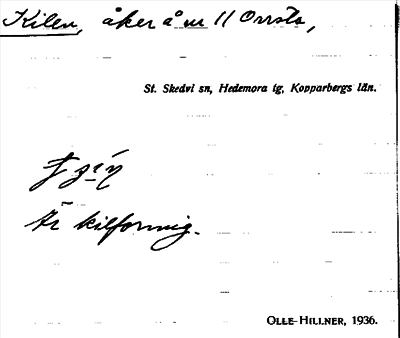 Kilen, åker å nr 11 Orrsta,
St. Skedvi sn, Hedemora tg, Kopparbergs län.
Är kilformig.
OLLE HILLNER, 1936.